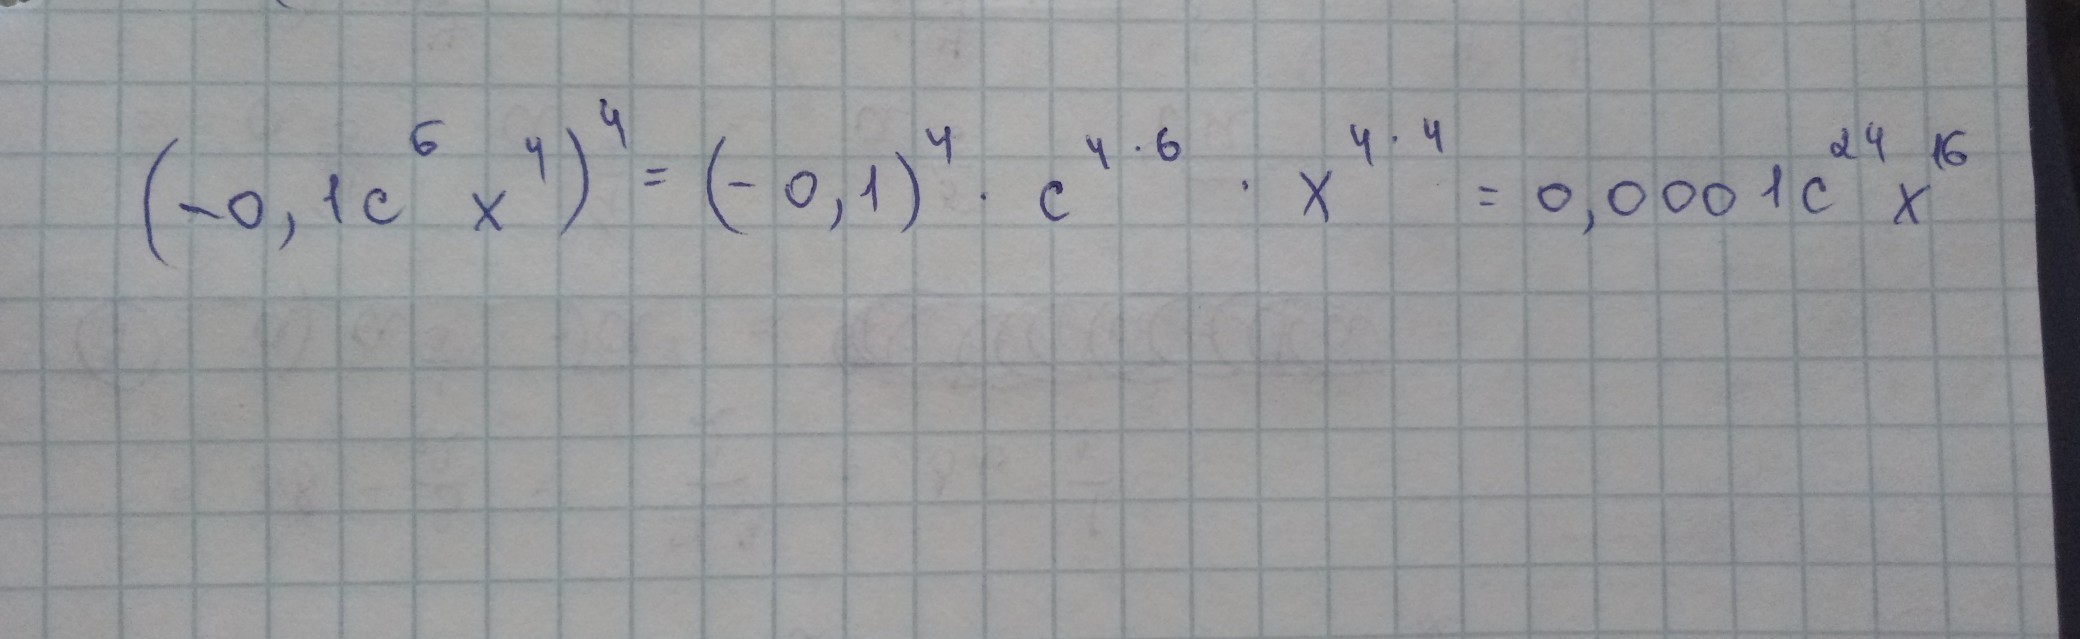 (-0,1c⁶x⁴)⁴ = (-0,1)⁴ · c⁴·⁶ · x⁴·⁴ = 0,0001c²⁴x¹⁶